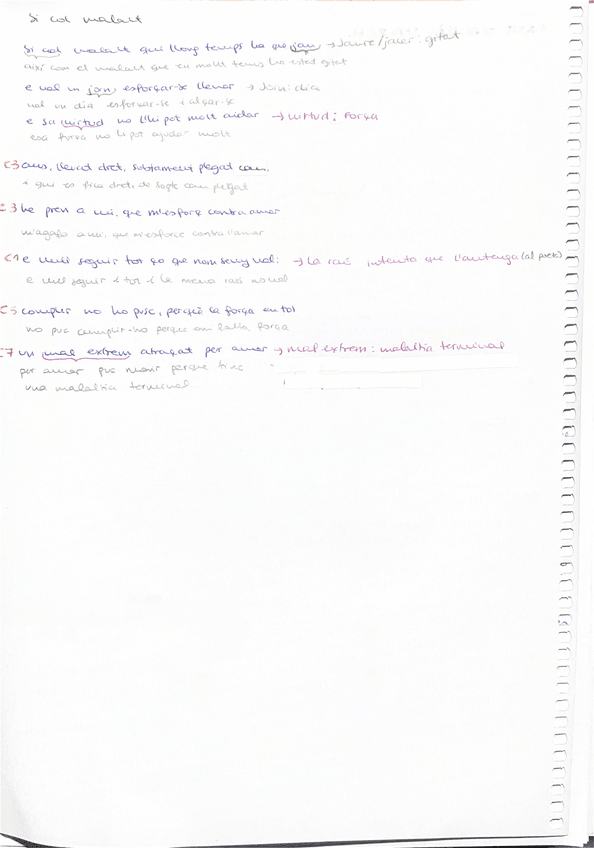 Si col malalt
Si col malalt qui llong temps ha que jau → Jaure/jacer: gitat
així com el malalt que en molt temps ha estat gitat
e vol un jorn esforçar-se llevar → Jorn: dia
vol un dia esforçar-se i alçar-se
e sa virtud no li pot molt aidar → virtud: Força
esa força no li pot ajudar molt
ans, llevat dret, subtament plegat cau,
i que es fica dret, de sopte cau plegat
ne pren a mi, que m'esforç contra amor
m'agafa a mi, que m'esforce contra l'amor
e vull seguir tot ço que mon seny vol: → la raó intenta que l'
e vull seguir i tot i la meua raó no vol
complir no ho puc, perquè la força em tol
no puc cumplir-ho perque em falta força
un mal extrem atraçat per amor → mal extrem: malaltia terminal
per amor puc morir perque tinc
una malaltia terminal